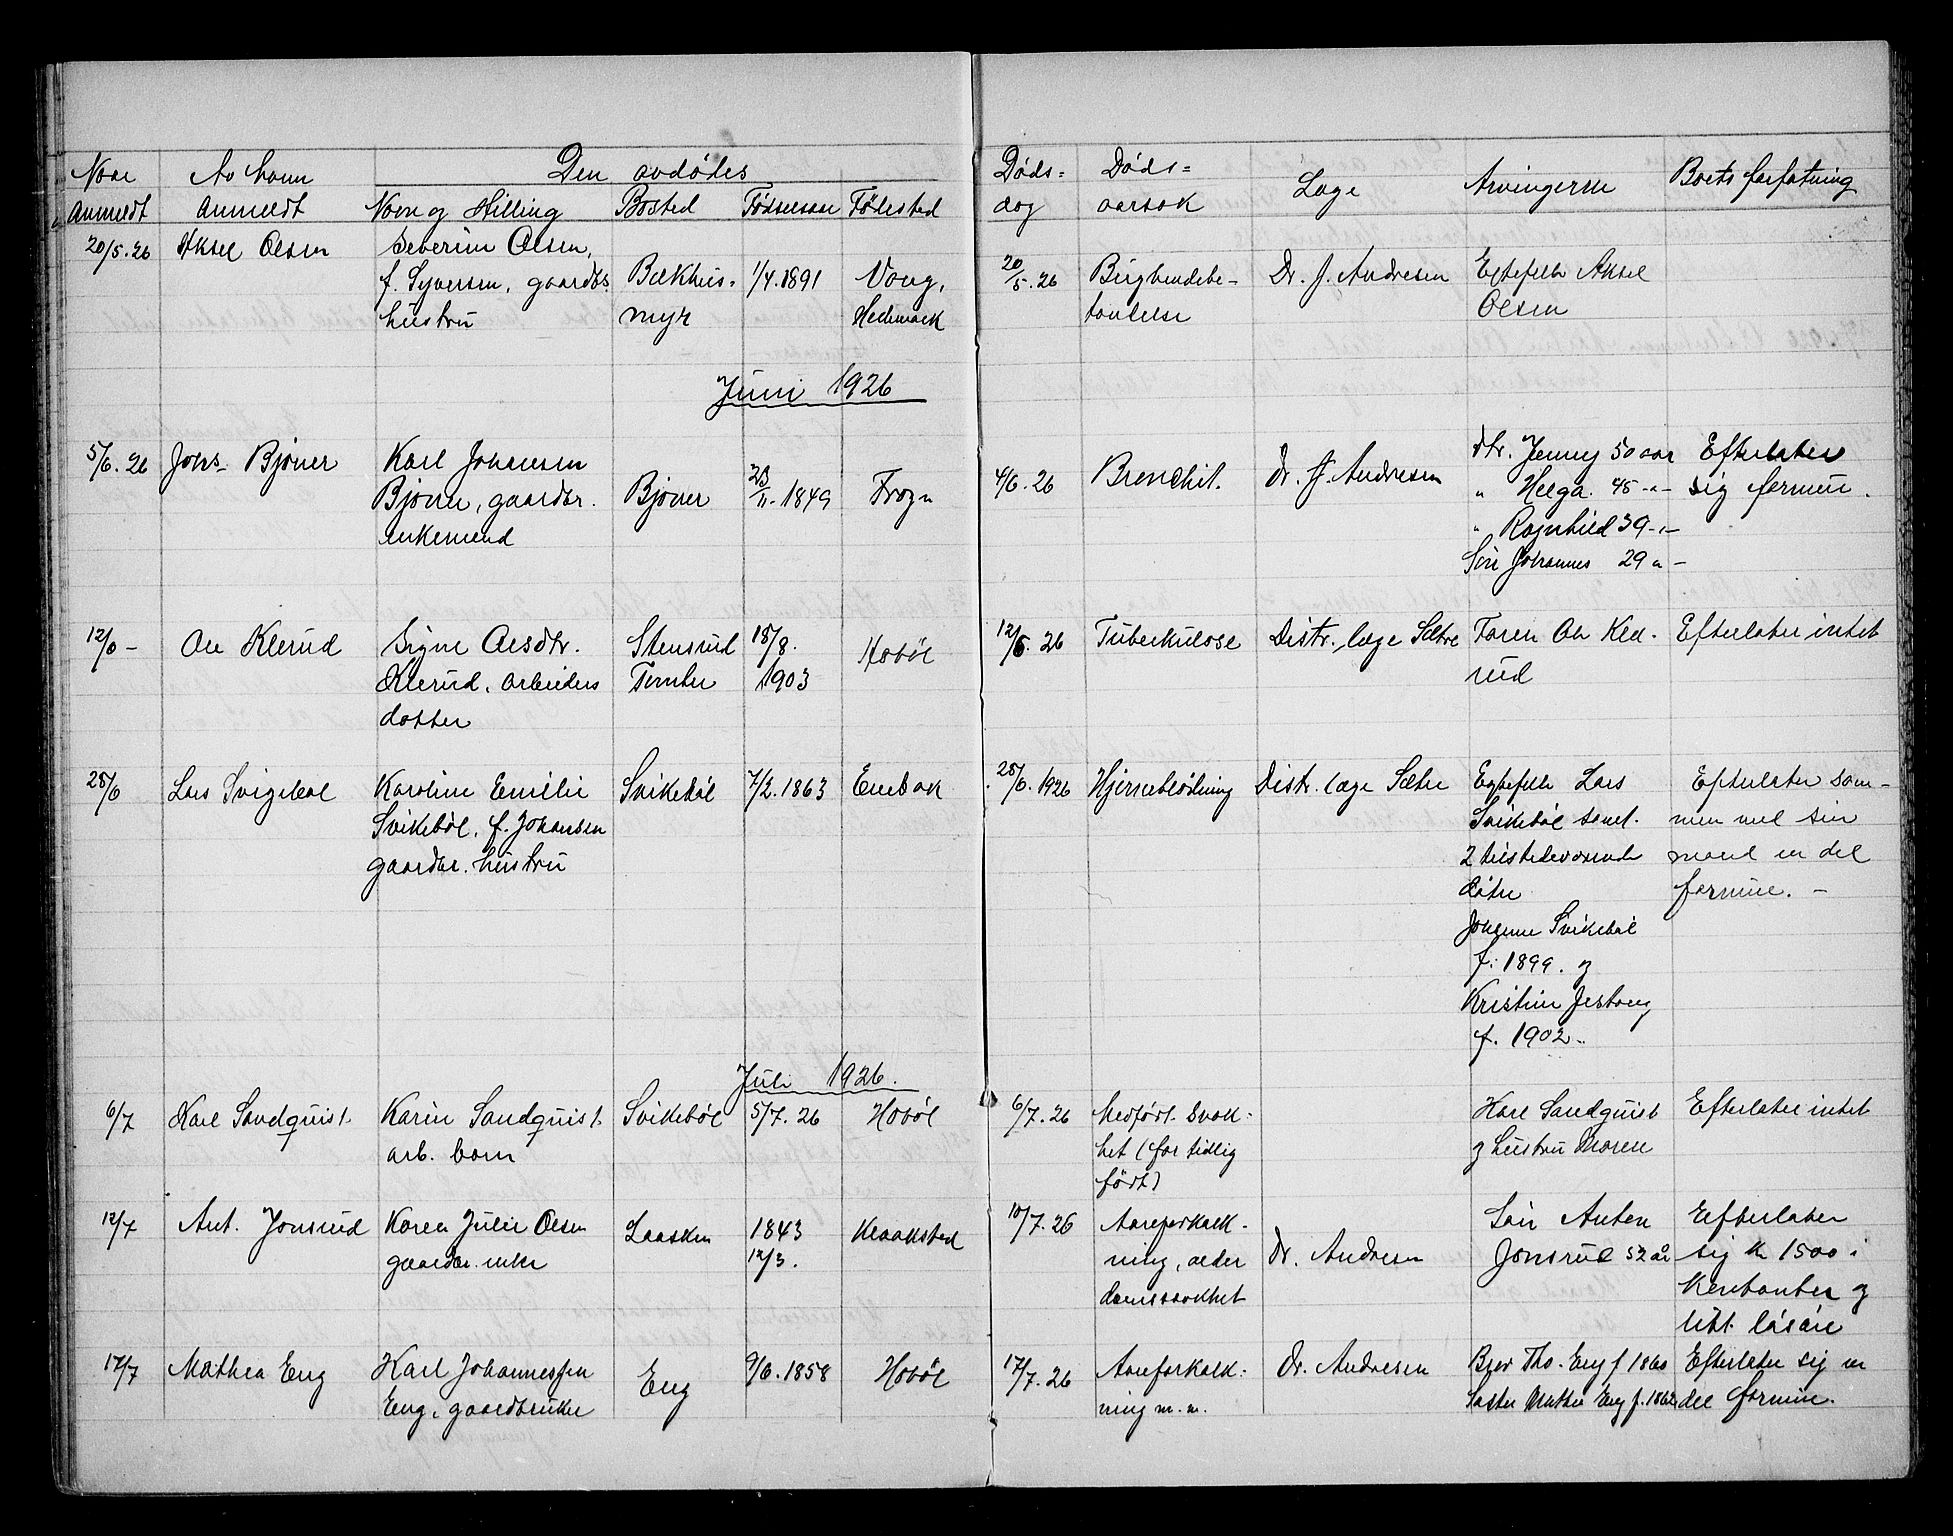 Naar Av hvem Den avdødes Døds= Døds= Læge Arvingerne Boets forfatning
Anmeldt Anmeldt Navn og Stilling Bosted Fødselsaar Fødested dag aarsak
20/5. 26 Aksel Olsen Severine Olsen,
f. Syversen, gaardbr. Bækkhus- 1/4. 1891 Vang, 20/5. 26 Bughindebe- Dr. J. Andresen Egtefelle Aksel
hustru myr Hedemark tændelse Olsen
Juni 1926
5/6. 26 Johs. Bjöner Karl Johansen 4/6. 26 Bronchit. Dr. J. Andresen dtr. Jenny 50 aar Efterlater
Bjöner, gaardbr. Bjöner 23/11. 1849 Frogn " Helga 45 -"- sig formue.
enkemand " Ragnhild 39 -"-
Sön Johannes 29 " -
12/6 - Ole Klerud Signe Olesdtr. Stensrud 18/8. Hobøl 12/6. 26 Tuberkulose Distr. læge Sætre Faren Ole Kle- Efterlater intet
Klerud, arbeiders Tomter 1903 rud
datter
28/6 Lars Svikebøl Karoline Emilie Svikebøl 7/2. 1863 Enebak 28/6. 1926 Hjerneblødning Distr. læge Sætre Egtefelle Lars Efterlater sam-
Svikebøl, f. Johansen Svikebøl samt. men med sin
gaardbr. hustru 2 tilstedeværende mand en del
døtre formue. -
Johanne Svikebøl
f. 1899. og
Kristine
f. 1902.
Juli 1926.
6/7 Karl Sandquist Karin Sandquist. Svikebøl 5/7. 26 Hobøl 6/7. 26 Medfødt Svak- Karl Sandquist Efterlater intet
arb. barn het (for tidlig og hustru Maren
født)
12/7 Ant. Jonsrud Karen Julie Olsen Laasken 1843 Kraakstad 10/7. 26 Aareforkalk- Sön Anton Efterlater
gaardbr. enke 12/3. ning, alder Dr. Andresen Jonsrud 52 år sig kr 1500 i
domssvakhet Kontanter og
litt løsøre
17/7 Mathea Eng Karl Johannessen Eng 9/6. 1858 Hobøl 17/7. 26 Aareforkalk- Dr. Andresen Bror Ths. Eng f 1860 Efterlater sig en
Eng, gaardbruker ning m. m. Søster Mathea Eng f. 1862 del formue.